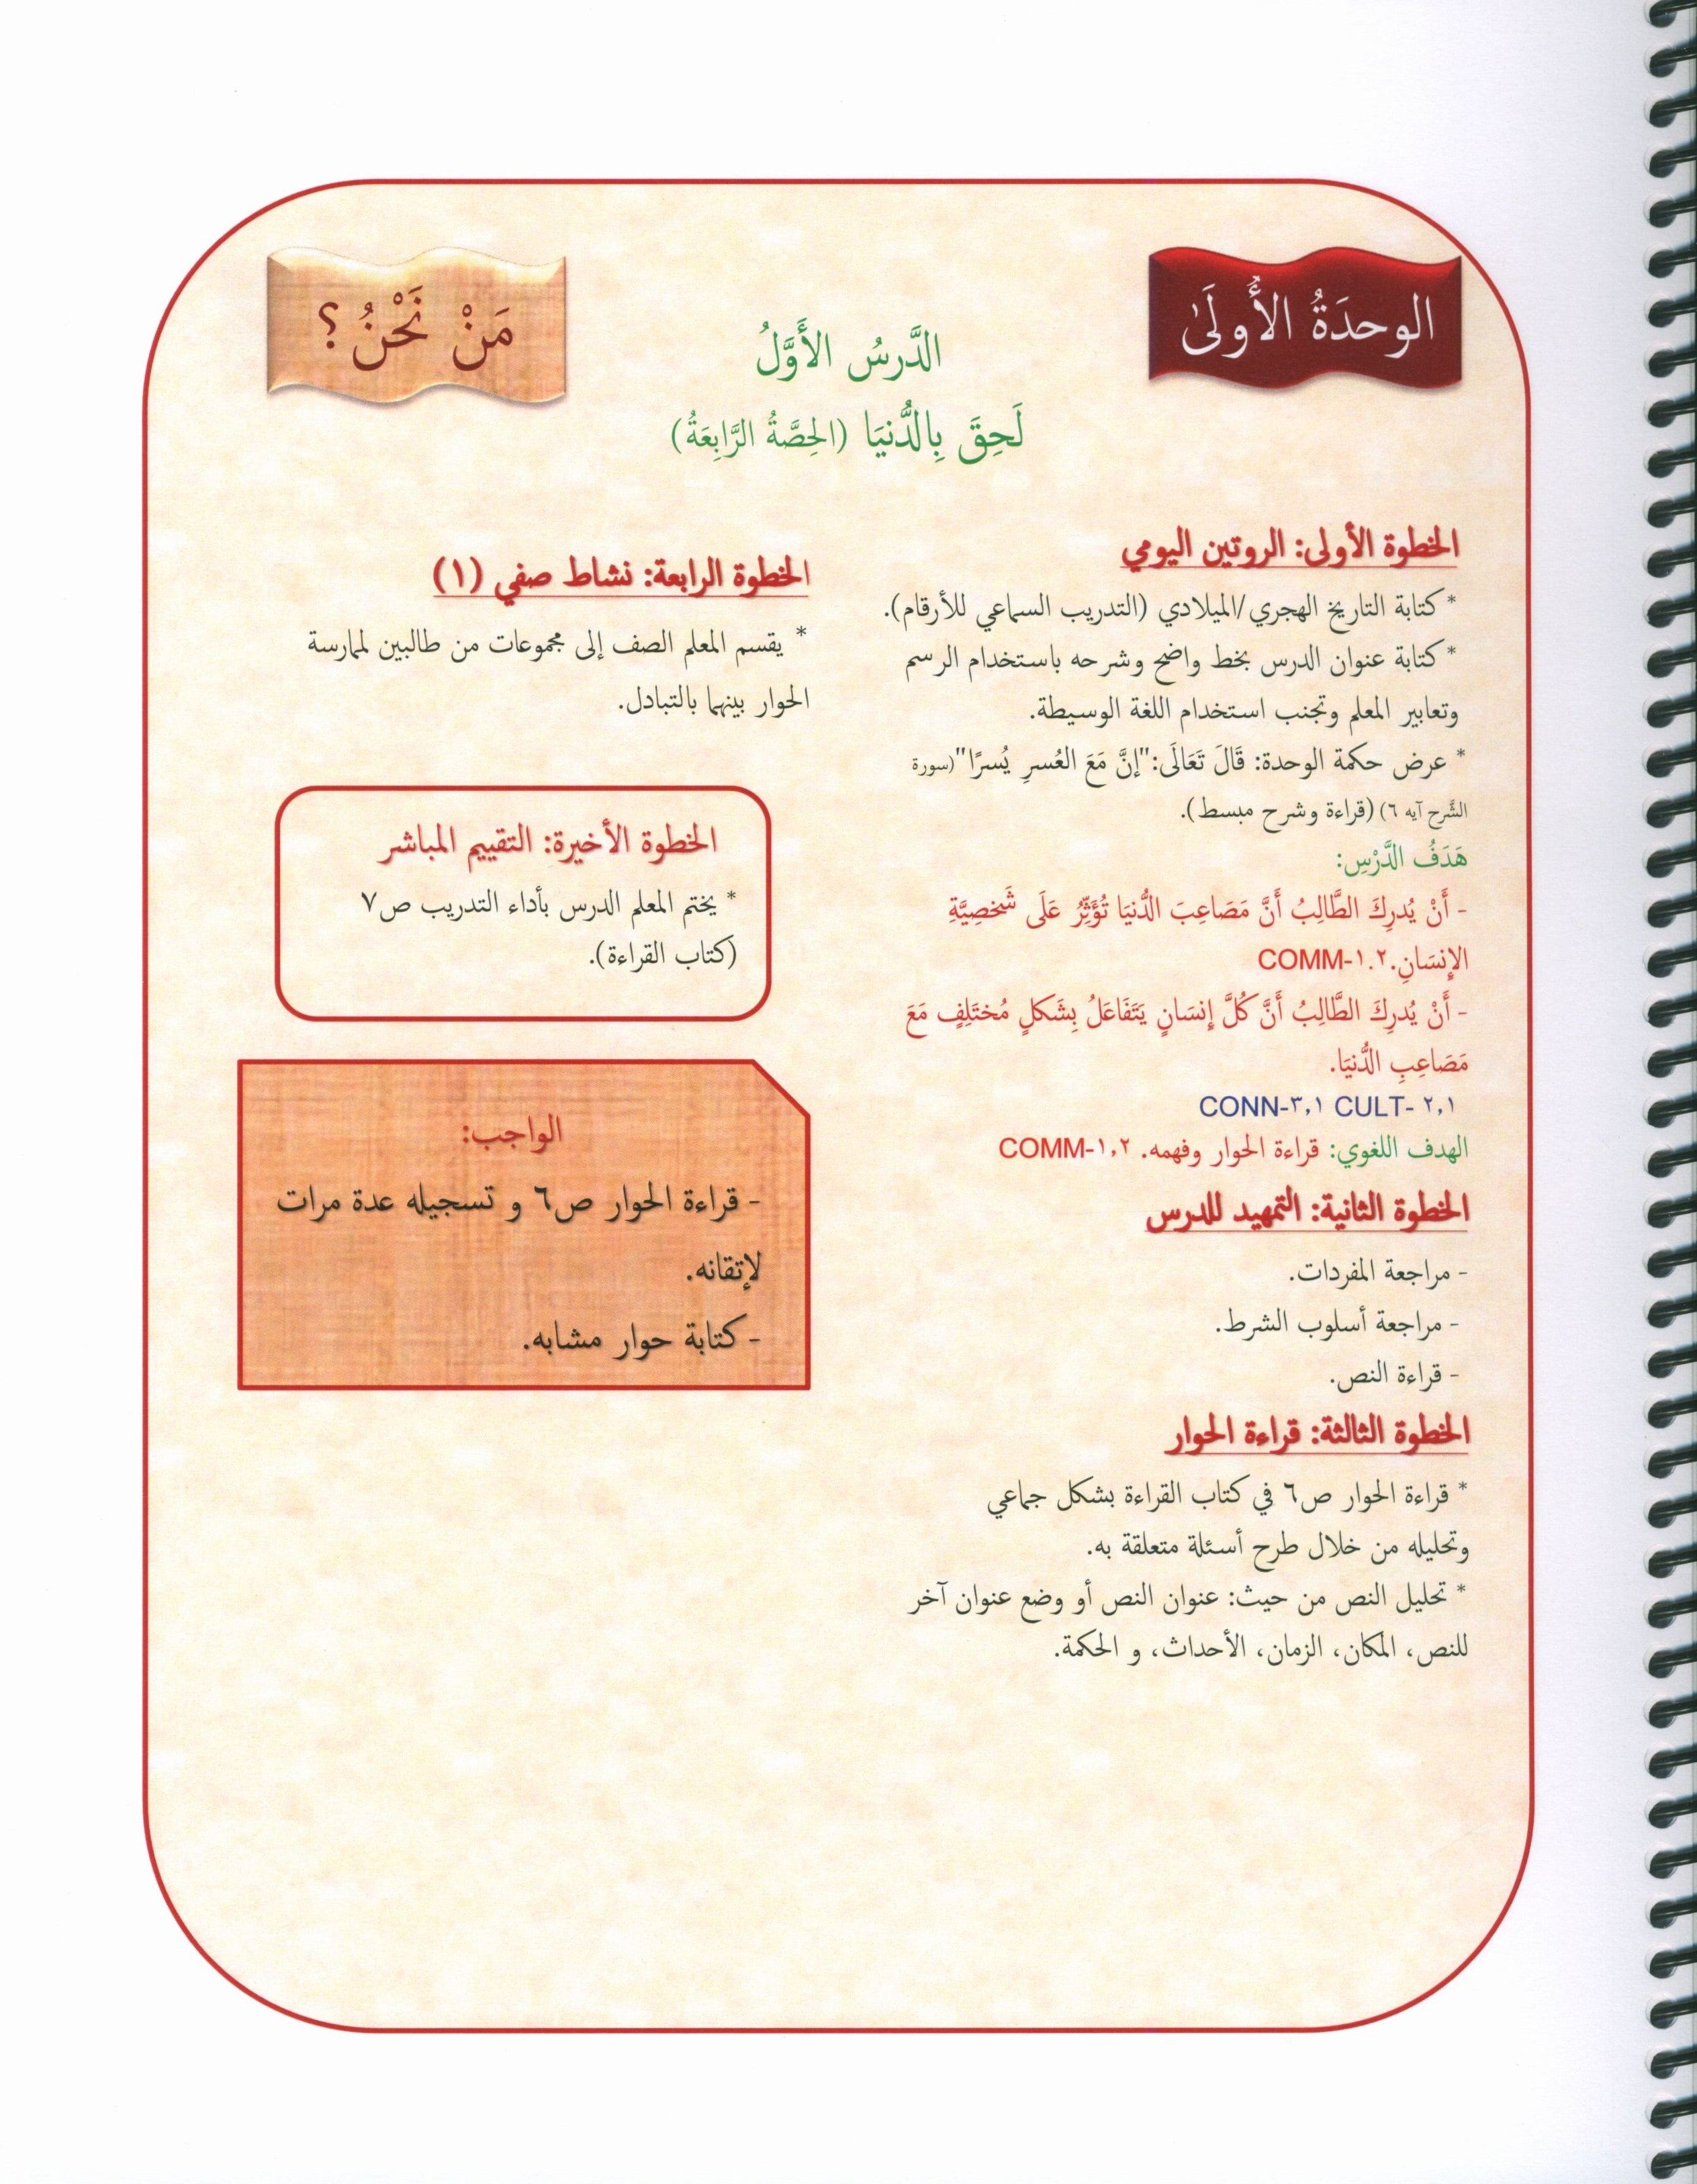 الوحدَةُ الأُولَىٰ
مَنْ نَحْنُ؟
الدَّرسُ الأَوَّلُ
لَحِقَ بِالدُّنيَا (الحِصَّةُ الرَّابِعَةُ)
الخطوة الأولى: الروتين اليومي
* كتابة التاريخ الهجري/الميلادي (التدريب السماعي للأرقام).
* كتابة عنوان الدرس بخط واضح وشرحه باستخدام الرسم
وتعابير المعلم وتجنب استخدام اللغة الوسيطة.
* عرض حكمة الوحدة: قَالَ تَعَالَى:"إنَّ مَعَ العُسرِ يُسرًا"(سورة
الشَّرح آيه ٦) (قراءة وشرح مبسط).
هَدَفُ الدَّرْسِ:
- أَنْ يُدرِكَ الطَّالِبُ أَنَّ مَصَاعِبَ الدُّنيَا تُؤَثِّرُ عَلَى شَخصِيَّةِ
الإِنسَانِ.COMM-١.٢
- أَنْ يُدرِكَ الطَّالِبُ أَنَّ كُلَّ إِنسَانٍ يَتَفَاعَلُ بِشَكلٍ مُختَلِفٍ مَعَ
مَصَاعِبِ الدُّنيَا.
CONN-٣,١ CULT- ٢,١
الهدف اللغوي: قراءة الحوار وفهمه. COMM-١,٢
الخطوة الثانية: التمهيد للدرس
- مراجعة المفردات.
- مراجعة أسلوب الشرط.
- قراءة النص.
الخطوة الثالثة: قراءة الحوار
* قراءة الحوار ص٦ في كتاب القراءة بشكل جماعي
وتحليله من خلال طرح أسئلة متعلقة به.
* تحليل النص من حيث: عنوان النص أو وضع عنوان آخر
للنص، المكان، الزمان، الأحداث، و الحكمة.
الخطوة الرابعة: نشاط صفي (١)
* يقسم المعلم الصف إلى مجموعات من طالبين لممارسة
الحوار بينهما بالتبادل.
الخطوة الأخيرة: التقييم المباشر
* يختم المعلم الدرس بأداء التدريب ص٧
(كتاب القراءة).
الواجب:
- قراءة الحوار ص٦ و تسجيله عدة مرات
لإتقانه.
- كتابة حوار مشابه.